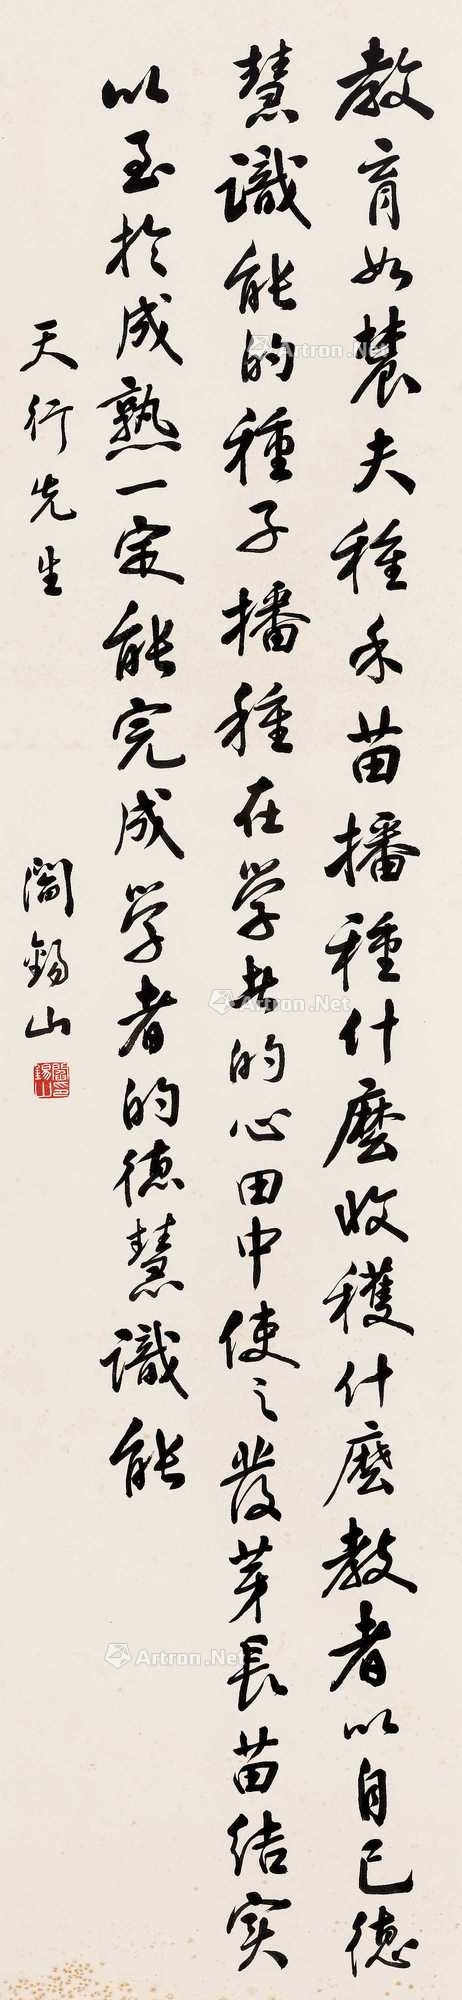 教育如農夫種禾苗播種什麼收穫什麼教者以自己德
慧識能的種子播種在学者的心田中使之發芽長苗结实
以至於成熟一定能完成学者的德慧識能
天行先生
閻錫山
閻錫山印
Artron.Net
Artron.Net
Artron.Net